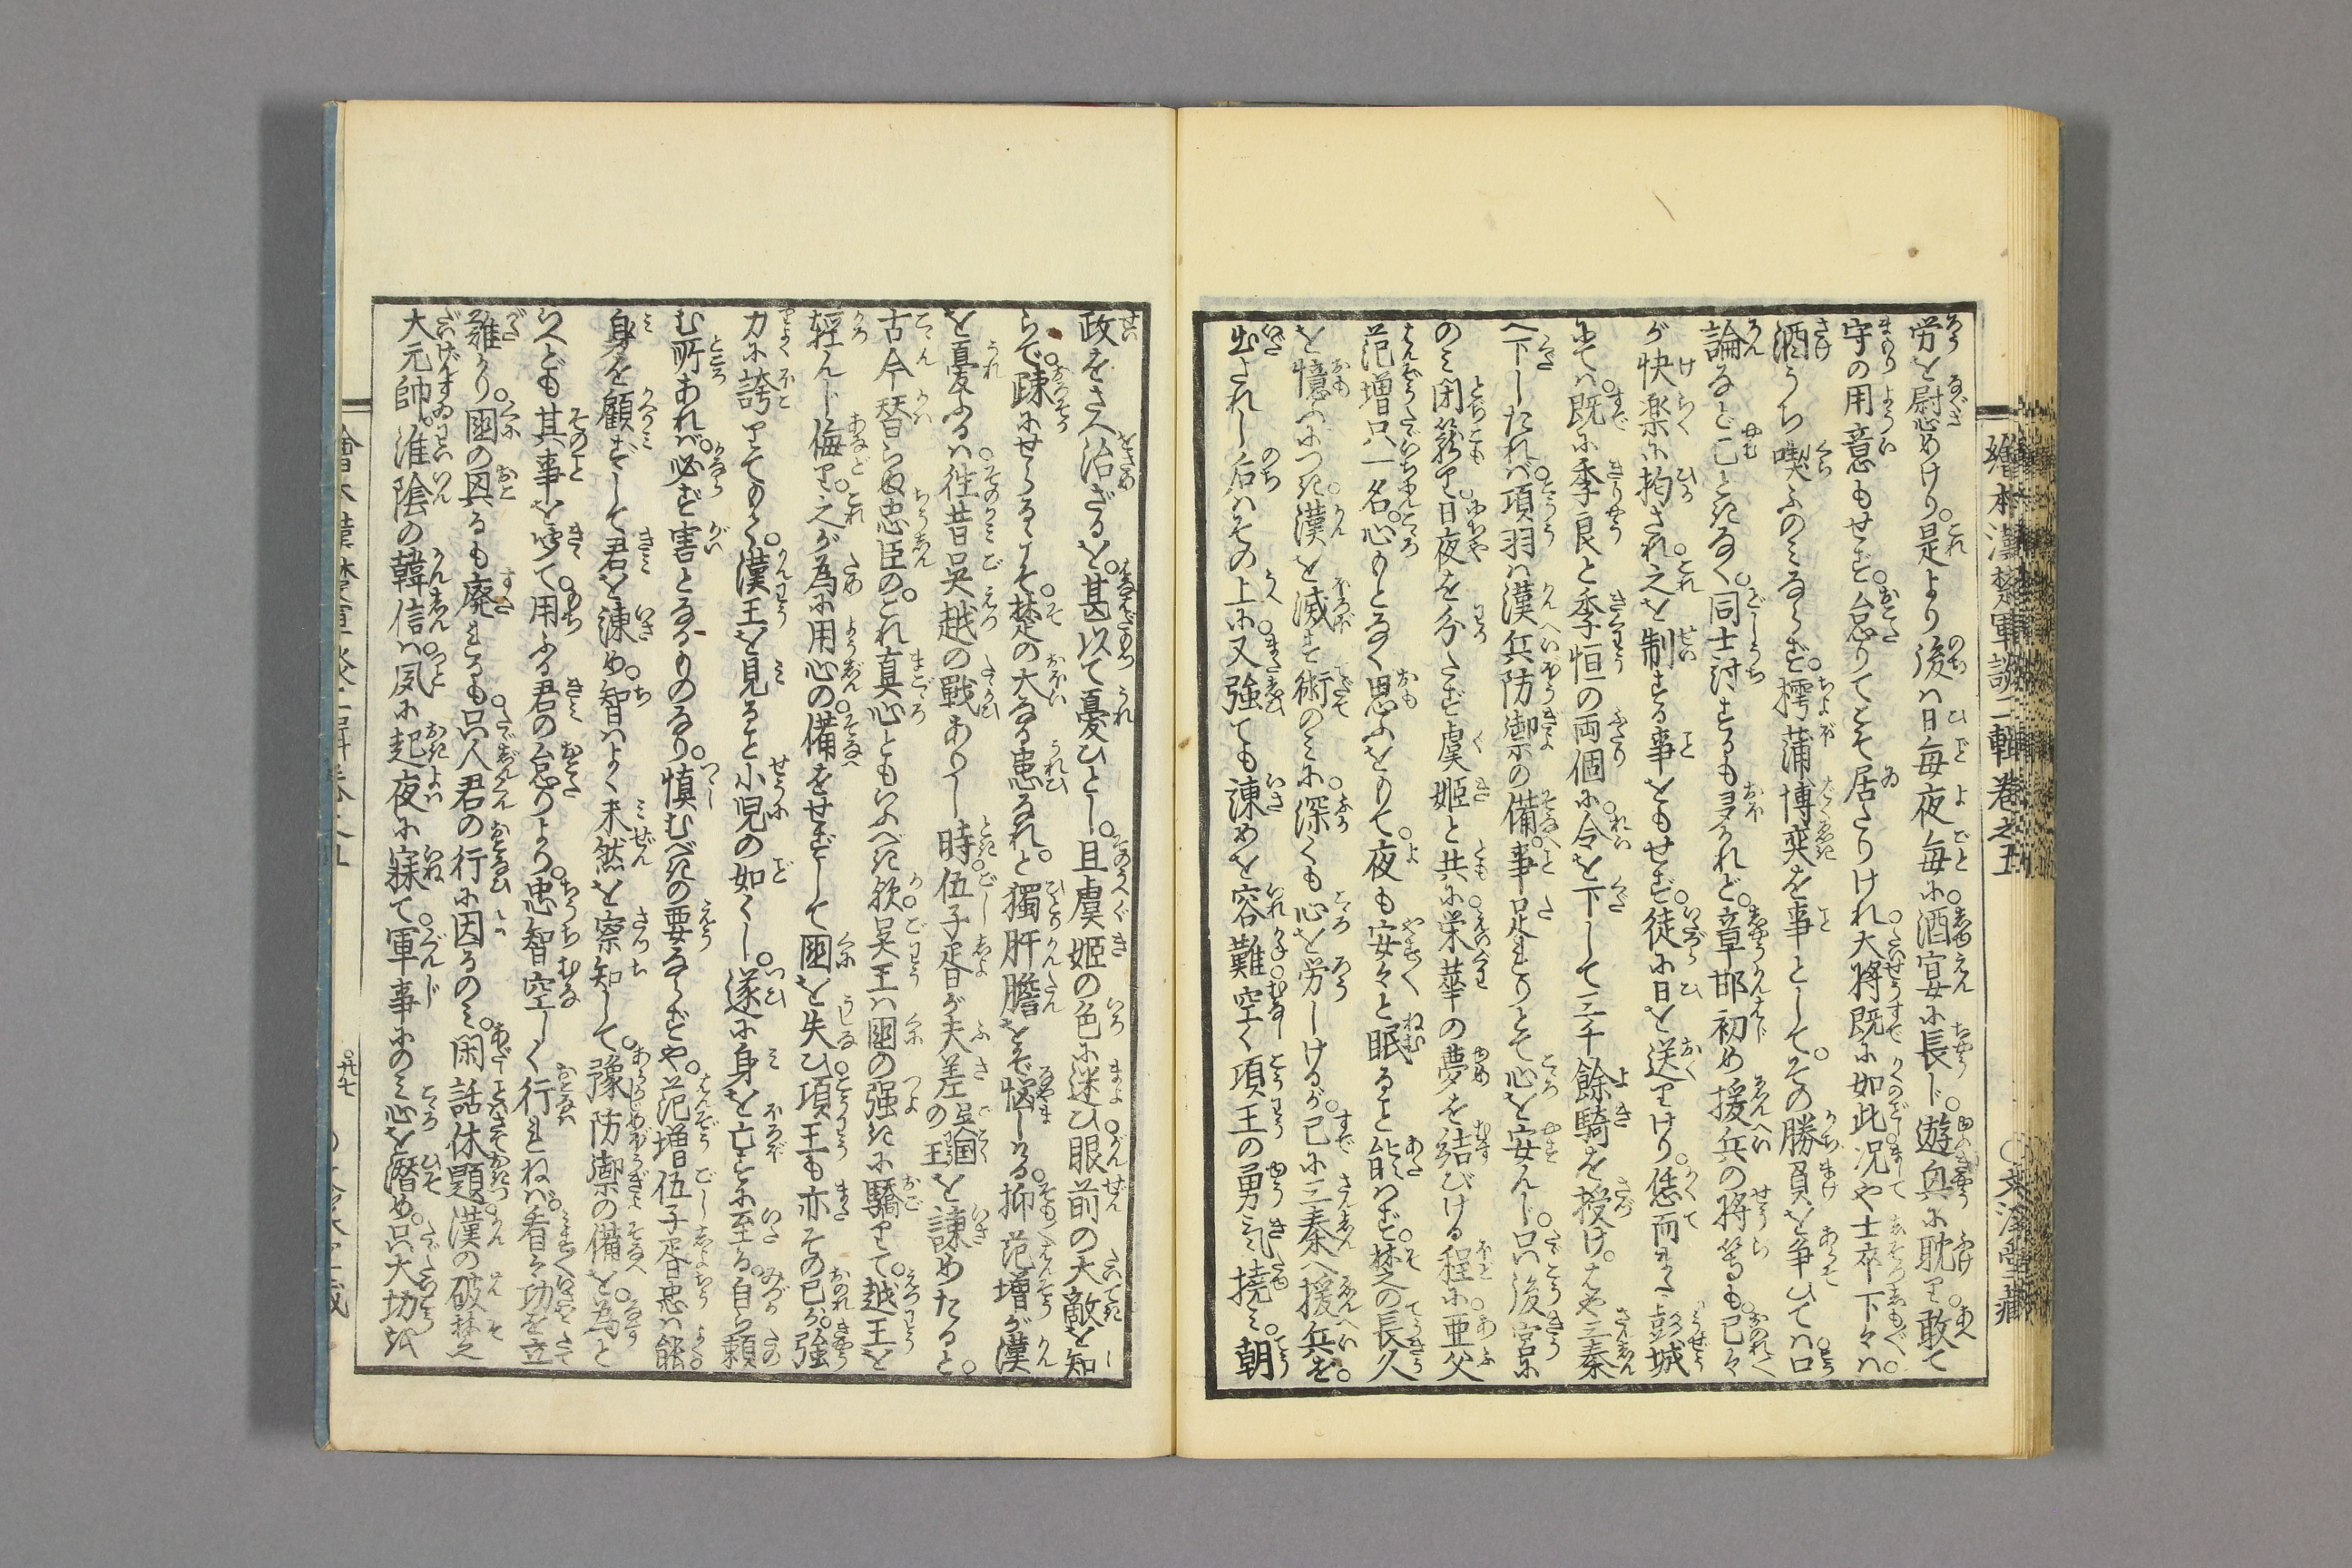 繪本漢楚軍談二輯卷之五
労を尉めけり。是より後ハ日毎夜毎に。酒宴に長じ。遊興に耽り。敢て
守の用意もせず。怠りてこそ居たりけれ。大将既に如此。况や士卒下々ハ。
酒うち喫ふのみならず。樗蒲博奕を事として。その勝負を争ひてハ。口
論など止ときなく。同士討するも多かれど。章邯初め援兵の将等も。己々
が快楽に拘され。之を制する事をもせず。徒に日を送りけり。恁而また彭城
にてハ。既に季良と季恒の両個に。令を下して三千餘騎を授け。はや三秦
へ下したれバ。項羽ハ漢兵防禦の備。事足れりとて心を安んじ。只後宮に
のミ閉籠り。日夜を分たず虞姫と共に。栄華の夢を結びける程に。亜父
范増只一名。心もとなく思ふをもて。夜も安々と眠ること能ハず。楚の長久
を憶ふにつき。漢を滅す術のミに。深くも心を労しけるが。已に三秦へ援兵を。
出されし后ハその上に。又強ても諫めを容難。空く項王の勇気撓ミ。朝
政をさへ治ざるを。甚以て憂ひとし。且虞姫の色に迷ひ。眼前の大敵を知
らで。疎にせらるゝこそ。楚の大なる患なれと。獨肝膽をぞ悩しける。抑范増が漢
を憂ふるハ。往昔呉越の戰ありし時。伍子胥が夫差呉国の王を諫めたると。
古今替らぬ忠臣の。これ真心ともいふべき歟。呉王ハ國の强きに驕りて。越王を
輕んじ侮り。之が為に用心の。備をせずして國を失ひ。項王も亦その己が。強
力に誇りてもて。漢王を見ること小児の如くし。遂に身を亡すに至る。自ら頼
む所あれバ。必ず害となるものなり。慎むべきの要ならずや。范増伍子胥忠ハ能。
身を顧ずして君を諫め。智ハよく未然を察知して。豫防禦の備を。為と
いへども其事を。聴て用ふる君の怠りより。忠智空しく行れねバ。看々功を立
難かり。國の興るも廃まるも。只人君の行に因るのミ。閑話休題。漢の破楚
大元帥。淮陰の韓信ハ。夙に起夜に寐て。軍事にのミ心を潜め。只大功を